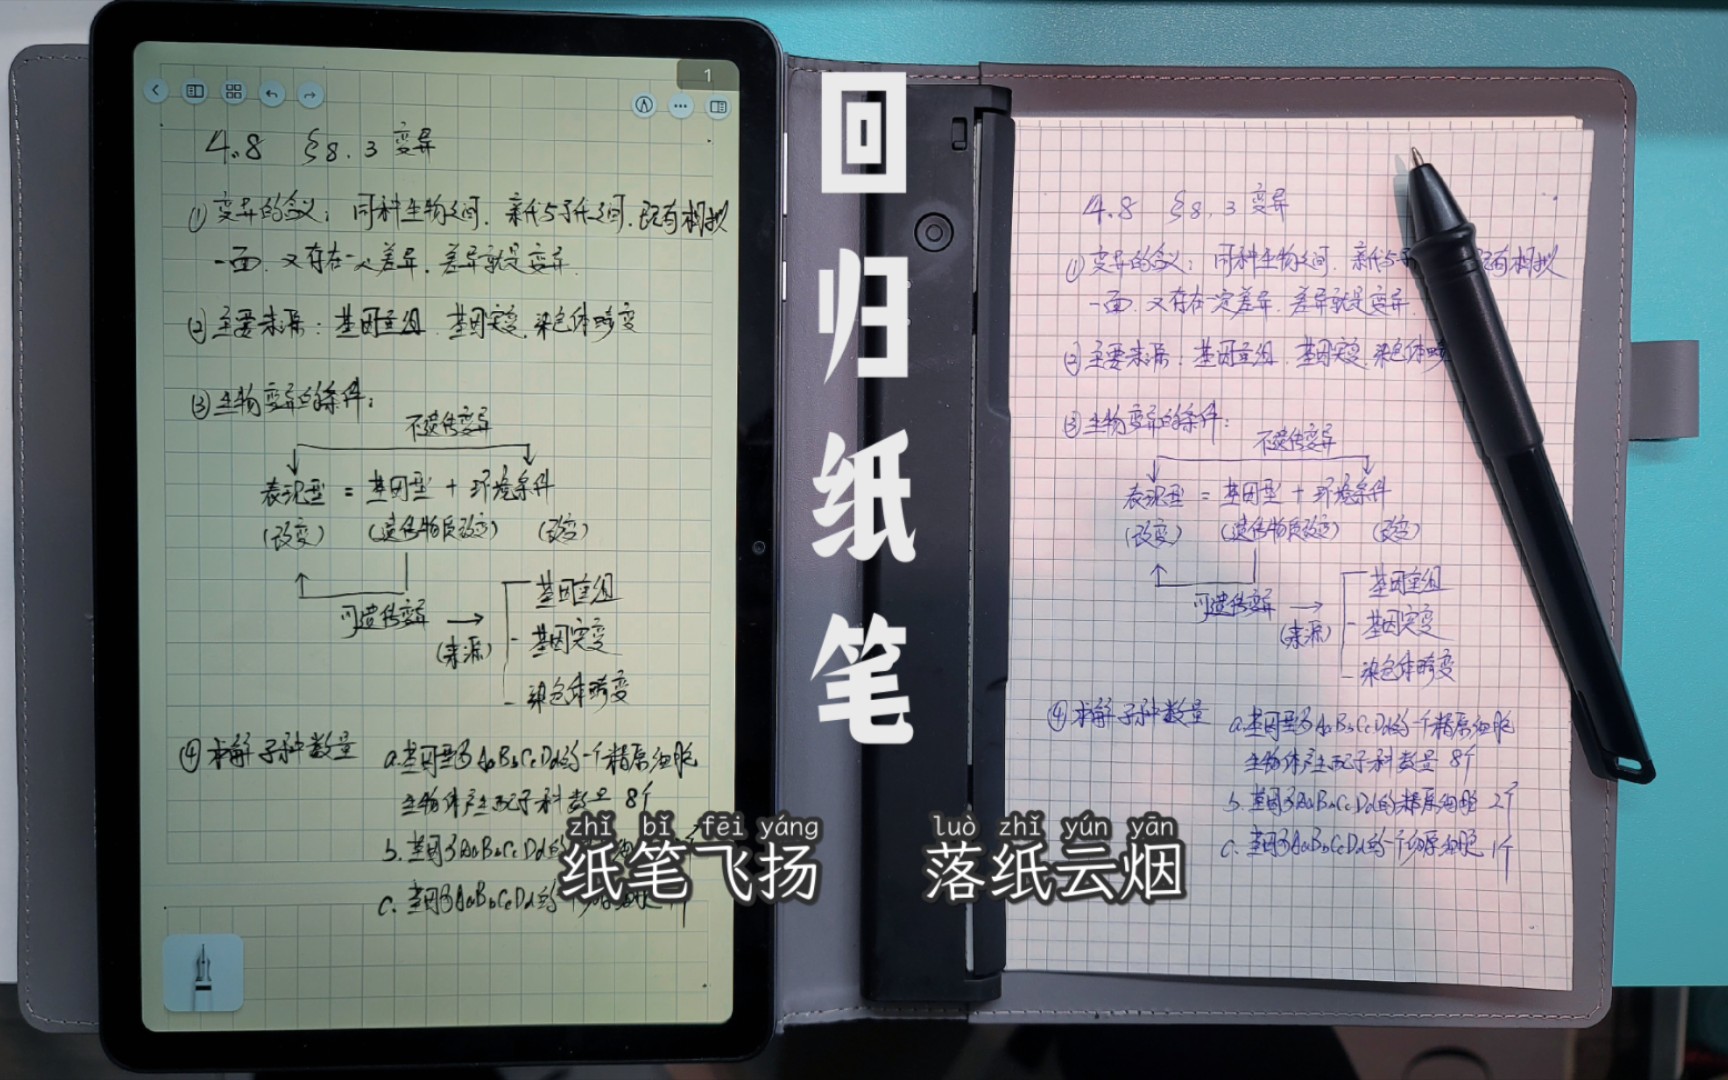 1
4.8 §8.3 变异
①变异的含义：同种生物之间．亲代与子代之间．既有相拟
一面．又存在一定差异．差异就是变异．
②主要来源：基因重组．基因突变．染色体畸变
③生物变异的条件：
不遗传变异
表现型 = 基因型 + 环境条件
(改变) (遗传物质改变) (改变)
可遗传变异 → (来源)
基因重组
- 基因突变
- 染色体畸变
④求解子种数量 a.基因型为AaBbCcDd的一个精原细胞
生物体产生配子种数量 8个
b.基因为AaBbCcDd的
c.基因为AaBbCcDd的一个
回归纸笔
4.8 §8.3 变异
①变异的含义：同种生物之间．亲代与 既有相拟
一面．又存在一定差异．差异就是变异．
②主要来源：基因重组．基因突变．染色体畸
③生物变异的条件：
不遗传变异
表现型 = 基因型 + 环境条件
(改变) (遗传物质改变) (改变)
可遗传变异 → (来源)
基因重组
- 基因突变
- 染色体畸变
④求解子种数量 a.基因型为AaBbCcDd的一个精原细胞
生物体产生配子种数量 8个
b.基因为AaBbCcDd的精原细胞 2个
c.基因为AaBbCcDd的一个卵原细胞 1个
zhǐ bǐ fēi yáng luò zhǐ yún yān
纸笔飞扬 落纸云烟